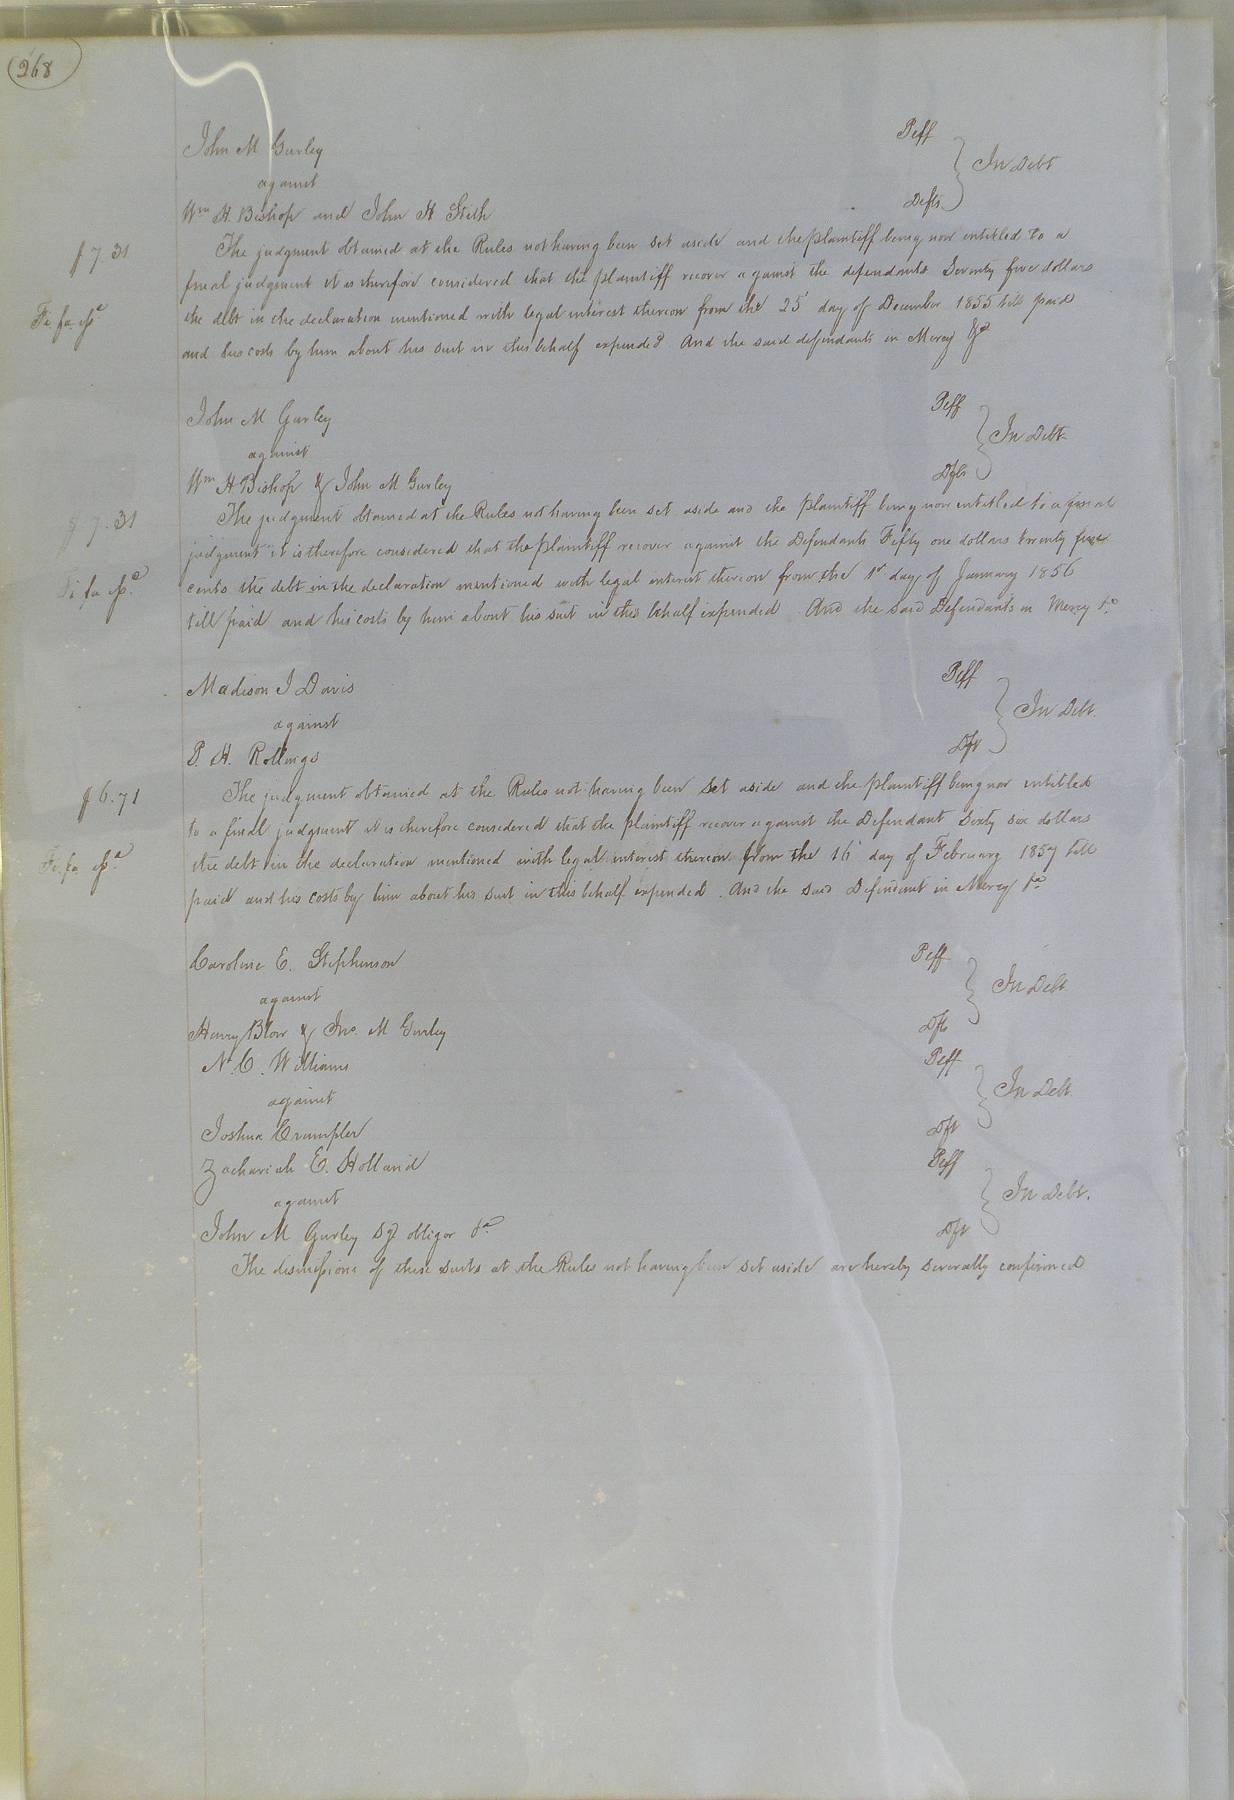 268
John M Gurley Pltff
against In Debt
Wm H. Bishop and John H Stith Defts
$7.31 The judgment obtained at the Rules not having been set aside and the plaintiff being now entitled to a
final judgment it is therefore considered that the plaintiff recover against the defendants Seventy five dollars
Fi. fa. the debt in the declaration mentioned with legal interest thereon from the 25 day of December 1855 till paid
and his costs by him about his suit in this behalf expended And the said defendants in Mercy &c
John M Gurley Pltff
against In Debt
Wm H Bishop & John M Gurley Dfts
$7.31 The judgment obtained at the Rules not having been set aside and the plaintiff being now entitled to a final
judgment it is therefore considered that the plaintiff recover against the Defendants Fifty one dollars twenty five
Fi fa cents the debt in the declaration mentioned with legal interest thereon from the 1st day of January 1856
till paid and his costs by him about his suit in this behalf expended. And the said Defendants in Mercy &c
Madison J Davis Pltff
against In Debt.
P. H. Rollings Dft
$6.71 The judgment obtained at the Rules not having been set aside and the plaintiff being now entitled
to a final judgment it is therefore considered that the plaintiff recover against the Defendant Sixty six dollars
Fi. fa the debt in the declaration mentioned with legal interest thereon from the 16 day of February 1857 till
paid and his costs by him about his suit in this behalf expended. And the said Defendant in Mercy &c
Caroline E. Stephenson Pltff
against In Debt
Henry Blow & Jno. M Gurley Dfts
N. C. Williams Pltff
against In Debt.
Joshua Crumpler Dft
Zachariah E. Holland Pltff
against In Debt.
John M Gurley obligor &c Dft
The dismissions of these suits at the Rules not having been set aside are hereby severally confirmed